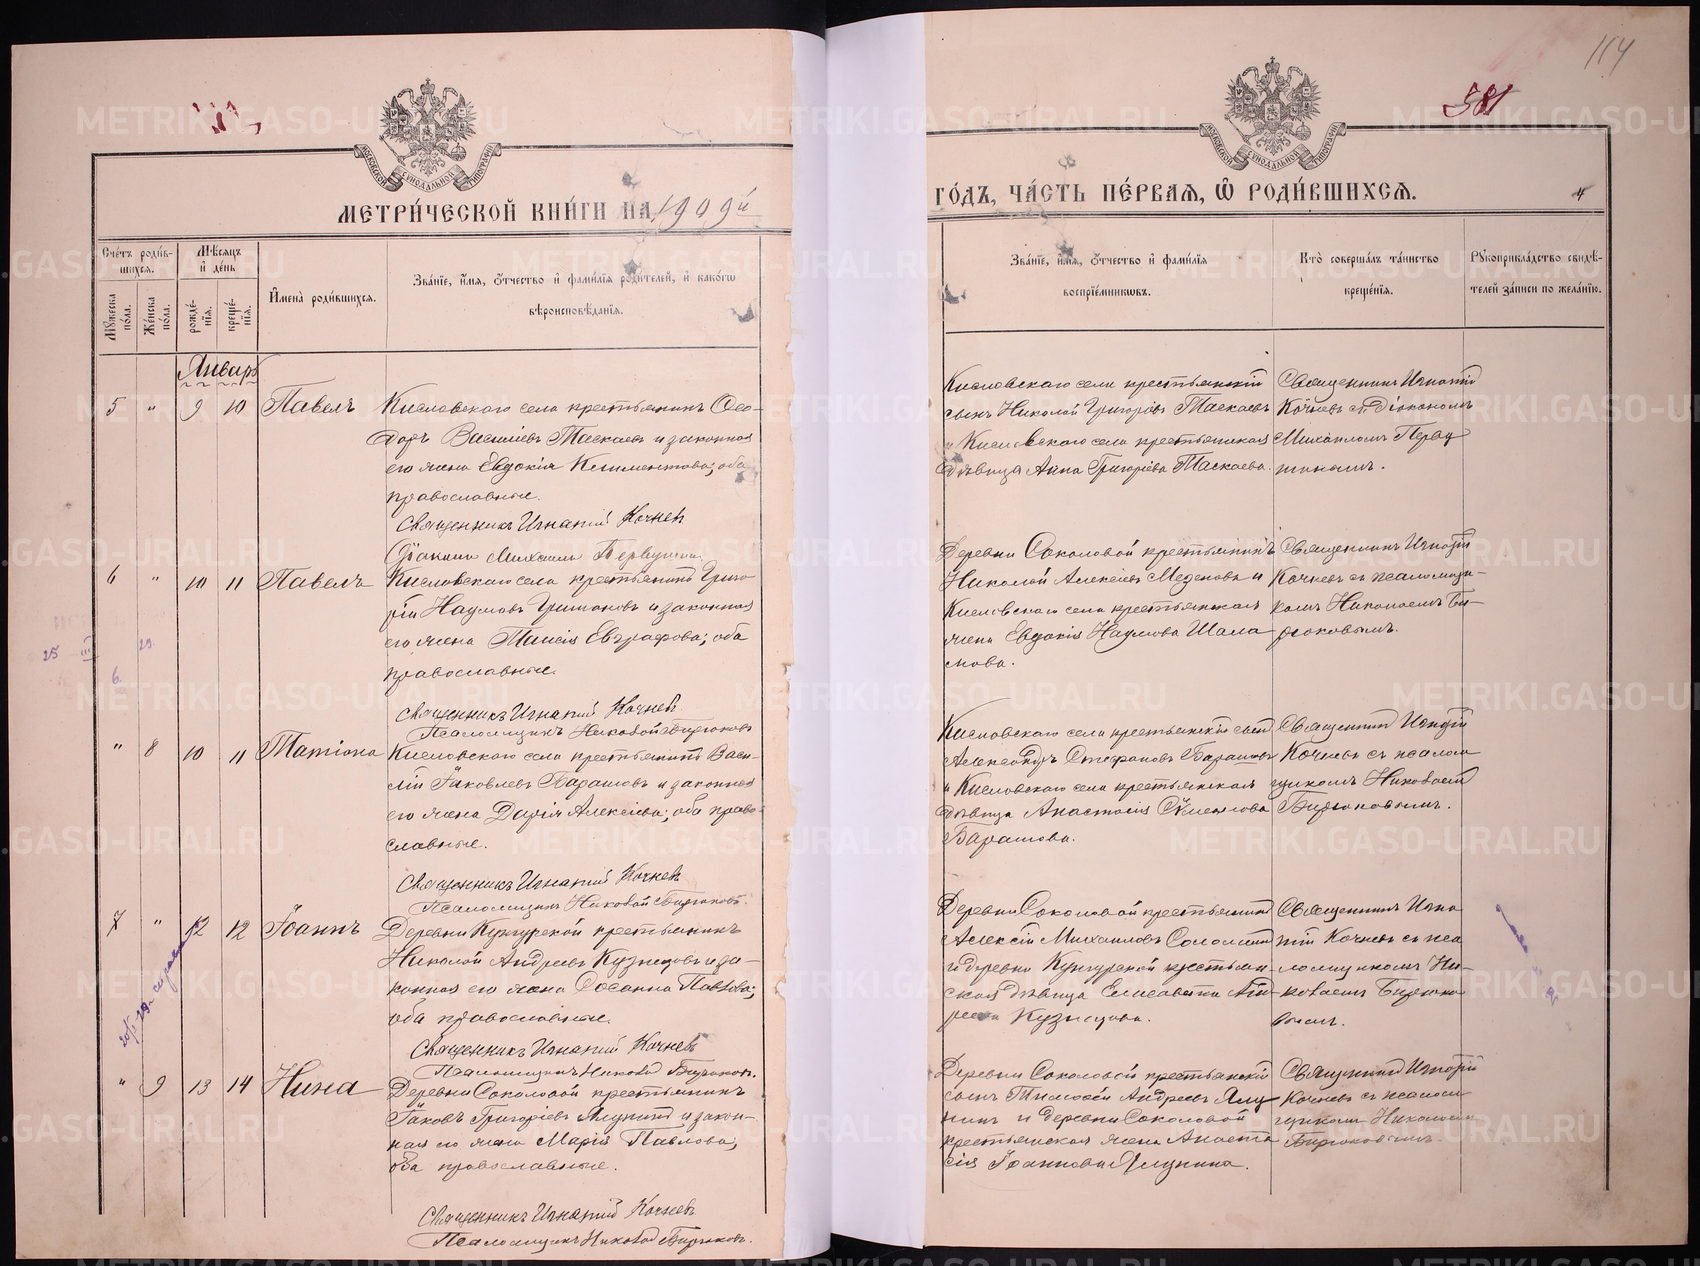 114
581
МЕТРИ́ЧЕСКОЙ КНИ́ГИ НА 1909й
ГО́ДЪ, ЧА́СТЬ ПЕ́РВАЯ, Ѡ҆ РОДИ́ВШИХСЯ.
4
Сче́тъ роди́вшихся.
Му́жеска по́ла.
Же́нска по́ла.
Мѣ́сяцъ и҆ де́нь
рожде́нїя.
креще́нїя.
И҆мена̀ роди́вшихся.
Зва́нїе, и҆́мя, ѻ҆́тчество и҆ фами́лїя роди́телей, и҆ како́гѡ
вѣроисповѣ́данїя.
Зва́нїе, и҆́мя, ѻ҆́тчество и҆ фами́лїя
воспрїе́мникѡвъ.
Кто̀ соверша́лъ та́инство
креще́нїя.
Рꙋкоприкла́дство свидѣ́-
телей за́писи по жела́нїю.
Январь
5 " 9 10 Павелъ
Кисловскаго села крестьянинъ Ѳео-
доръ Василіевъ Таскаевъ и законная
его жена Евдокія Климентова; оба
православные.
Священникъ Игнатій Кочневъ
Діаконъ Михаилъ Первушинъ
Кисловскаго села крестьянскій
сынъ Николай Григоріевъ Таскаевъ
и Кисловскаго села крестьянская
дѣвица Анна Григоріева Таскаева.
Священникъ Игнатій
Кочневъ съ діакономъ
Михаиломъ Перву
шинымъ.
6 " 10 11 Павелъ
Кисловскаго села крестьянинъ Григо-
рій Наумовъ и законная
его жена Таисія Евграфова; оба
православные.
Священникъ Игнатій Кочневъ
Псаломщикъ Николай Бирюковъ
Деревни Соколовой крестьянинъ
Николай Алексіевъ и
Кисловскаго села крестьянская
жена Евдокія Наумова Шала
мова.
Священникъ Игнатій
Кочневъ съ псаломщи-
комъ Николаемъ Би-
рюковымъ.
" 8 10 11 Татіана
Кисловскаго села крестьянинъ Васи-
лій Іаковлевъ Барашовъ и законная
его жена Дарія Алексіева; оба право-
славные.
Священникъ Игнатій Кочневъ
Псаломщикъ Николай Бирюковъ.
Кисловскаго села крестьянскій сынъ
Александръ Стефановъ Барашовъ
и Кисловскаго села крестьянская
дѣвица Анастасія
Барашова.
Священникъ Игнатій
Кочневъ съ псалом
щикомъ Николаемъ
Бирюковымъ.
7 " 12 12 Іоаннъ
Деревни Кунгурской крестьянинъ
Николай Андреевъ Кузнецовъ и за-
конная его жена Сосанна Павлова;
оба православные.
Священникъ Игнатій Кочневъ
Псаломщикъ Николай Бирюков.
Деревни Соколовой крестьянинъ
Алексій Михаиловъ
и деревни Кунгурской крестьян-
ская дѣвица Елисавета Ан-
реева Кузнецова.
Священникъ Игна
тій Кочневъ съ пса
ломщикомъ Ни-
колаемъ Бирюко
вымъ.
" 9 13 14 Нина
Деревни Соколовой крестьянинъ
Іаковъ Григоріевъ Ялунинъ и закон-
ная его жена Марія Павлова;
оба православные.
Священникъ Игнатій Кочневъ
Псаломщикъ Николай Бирюковъ.
Деревни Соколовой крестьянскій
сынъ Тимоѳей Андреевъ Ялу
нинъ и деревни Соколовой
крестьянская жена Анаста
сія Іоаннова Ялунина.
Священникъ Игнатій
Кочневъ съ псалом
щикомъ Николаемъ
Бирюковымъ.
METRIKI.GASO-URAL.RU